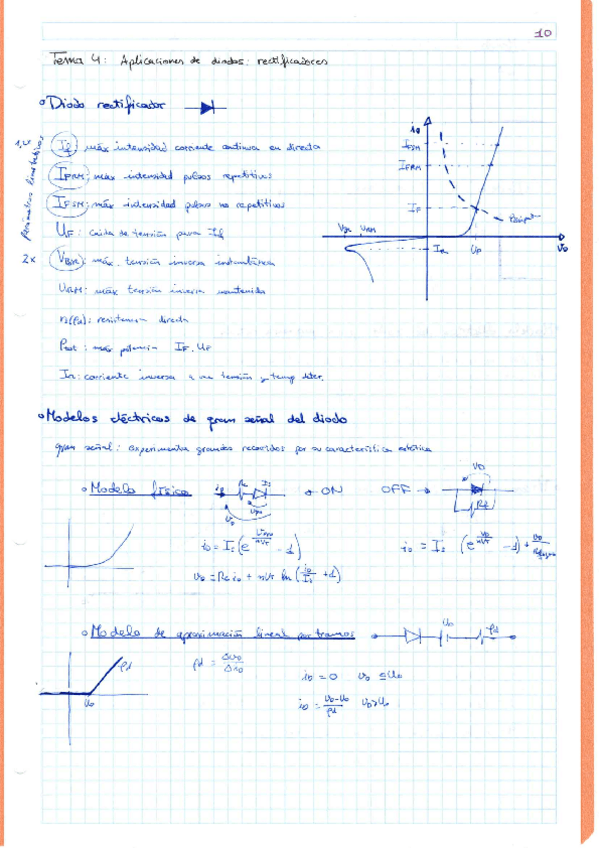 10
Tema 4: Aplicaciones de diodos: rectificadores
Diodo rectificador
Parámetros limitativos
If: máx intensidad corriente continua en directa
IFRM: máx intensidad pulsos repetitivos
IFSM: máx intensidad pulsos no repetitivos
UF: caída de tensión para If
2x VBR: máx. tensión inversa instantánea
URM: máx tensión inversa mantenida
resistencia directa
máx potencia IF. UF
IR: corriente inversa a una tensión y temp deter.
iD
IFSM
IFRM
IF
VBR VRM
IR
UF
VD
Modelos eléctricos de gran señal del diodo
gran señal: experimenta grandes recorridos por su característica estática
Modelo físico
ON OFF
VD
iD = Is (e - 1)
vD = Rc iD + nVT ln (iD/Is + 1)
Modelo de aproximación lineal por tramos
ρd
U0
ρd = ΔvD/ΔiD
iD = 0 vD ≤ U0
iD = vD-U0/ρd vD>U0